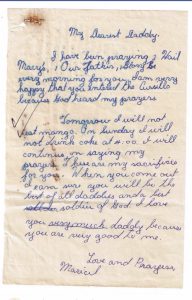 My Dearest Daddy,
I have bun praying 1 Hail
Mary, 1 Our Father, & Song
every morning for you. I am very
happy that you entered the Cursillo
because God heard my prayers.
Tomorrow I will not
eat mango. On Sunday I will
not drink coke at 4:00. I will
continue on saying my
prayers. These are my sacrifices
for you. When you come out
I am sure you will be the
best of all daddies and a best
soldier of God. I love
you very much daddy because
you are very good to me.
Love and Prayers,
Maricel